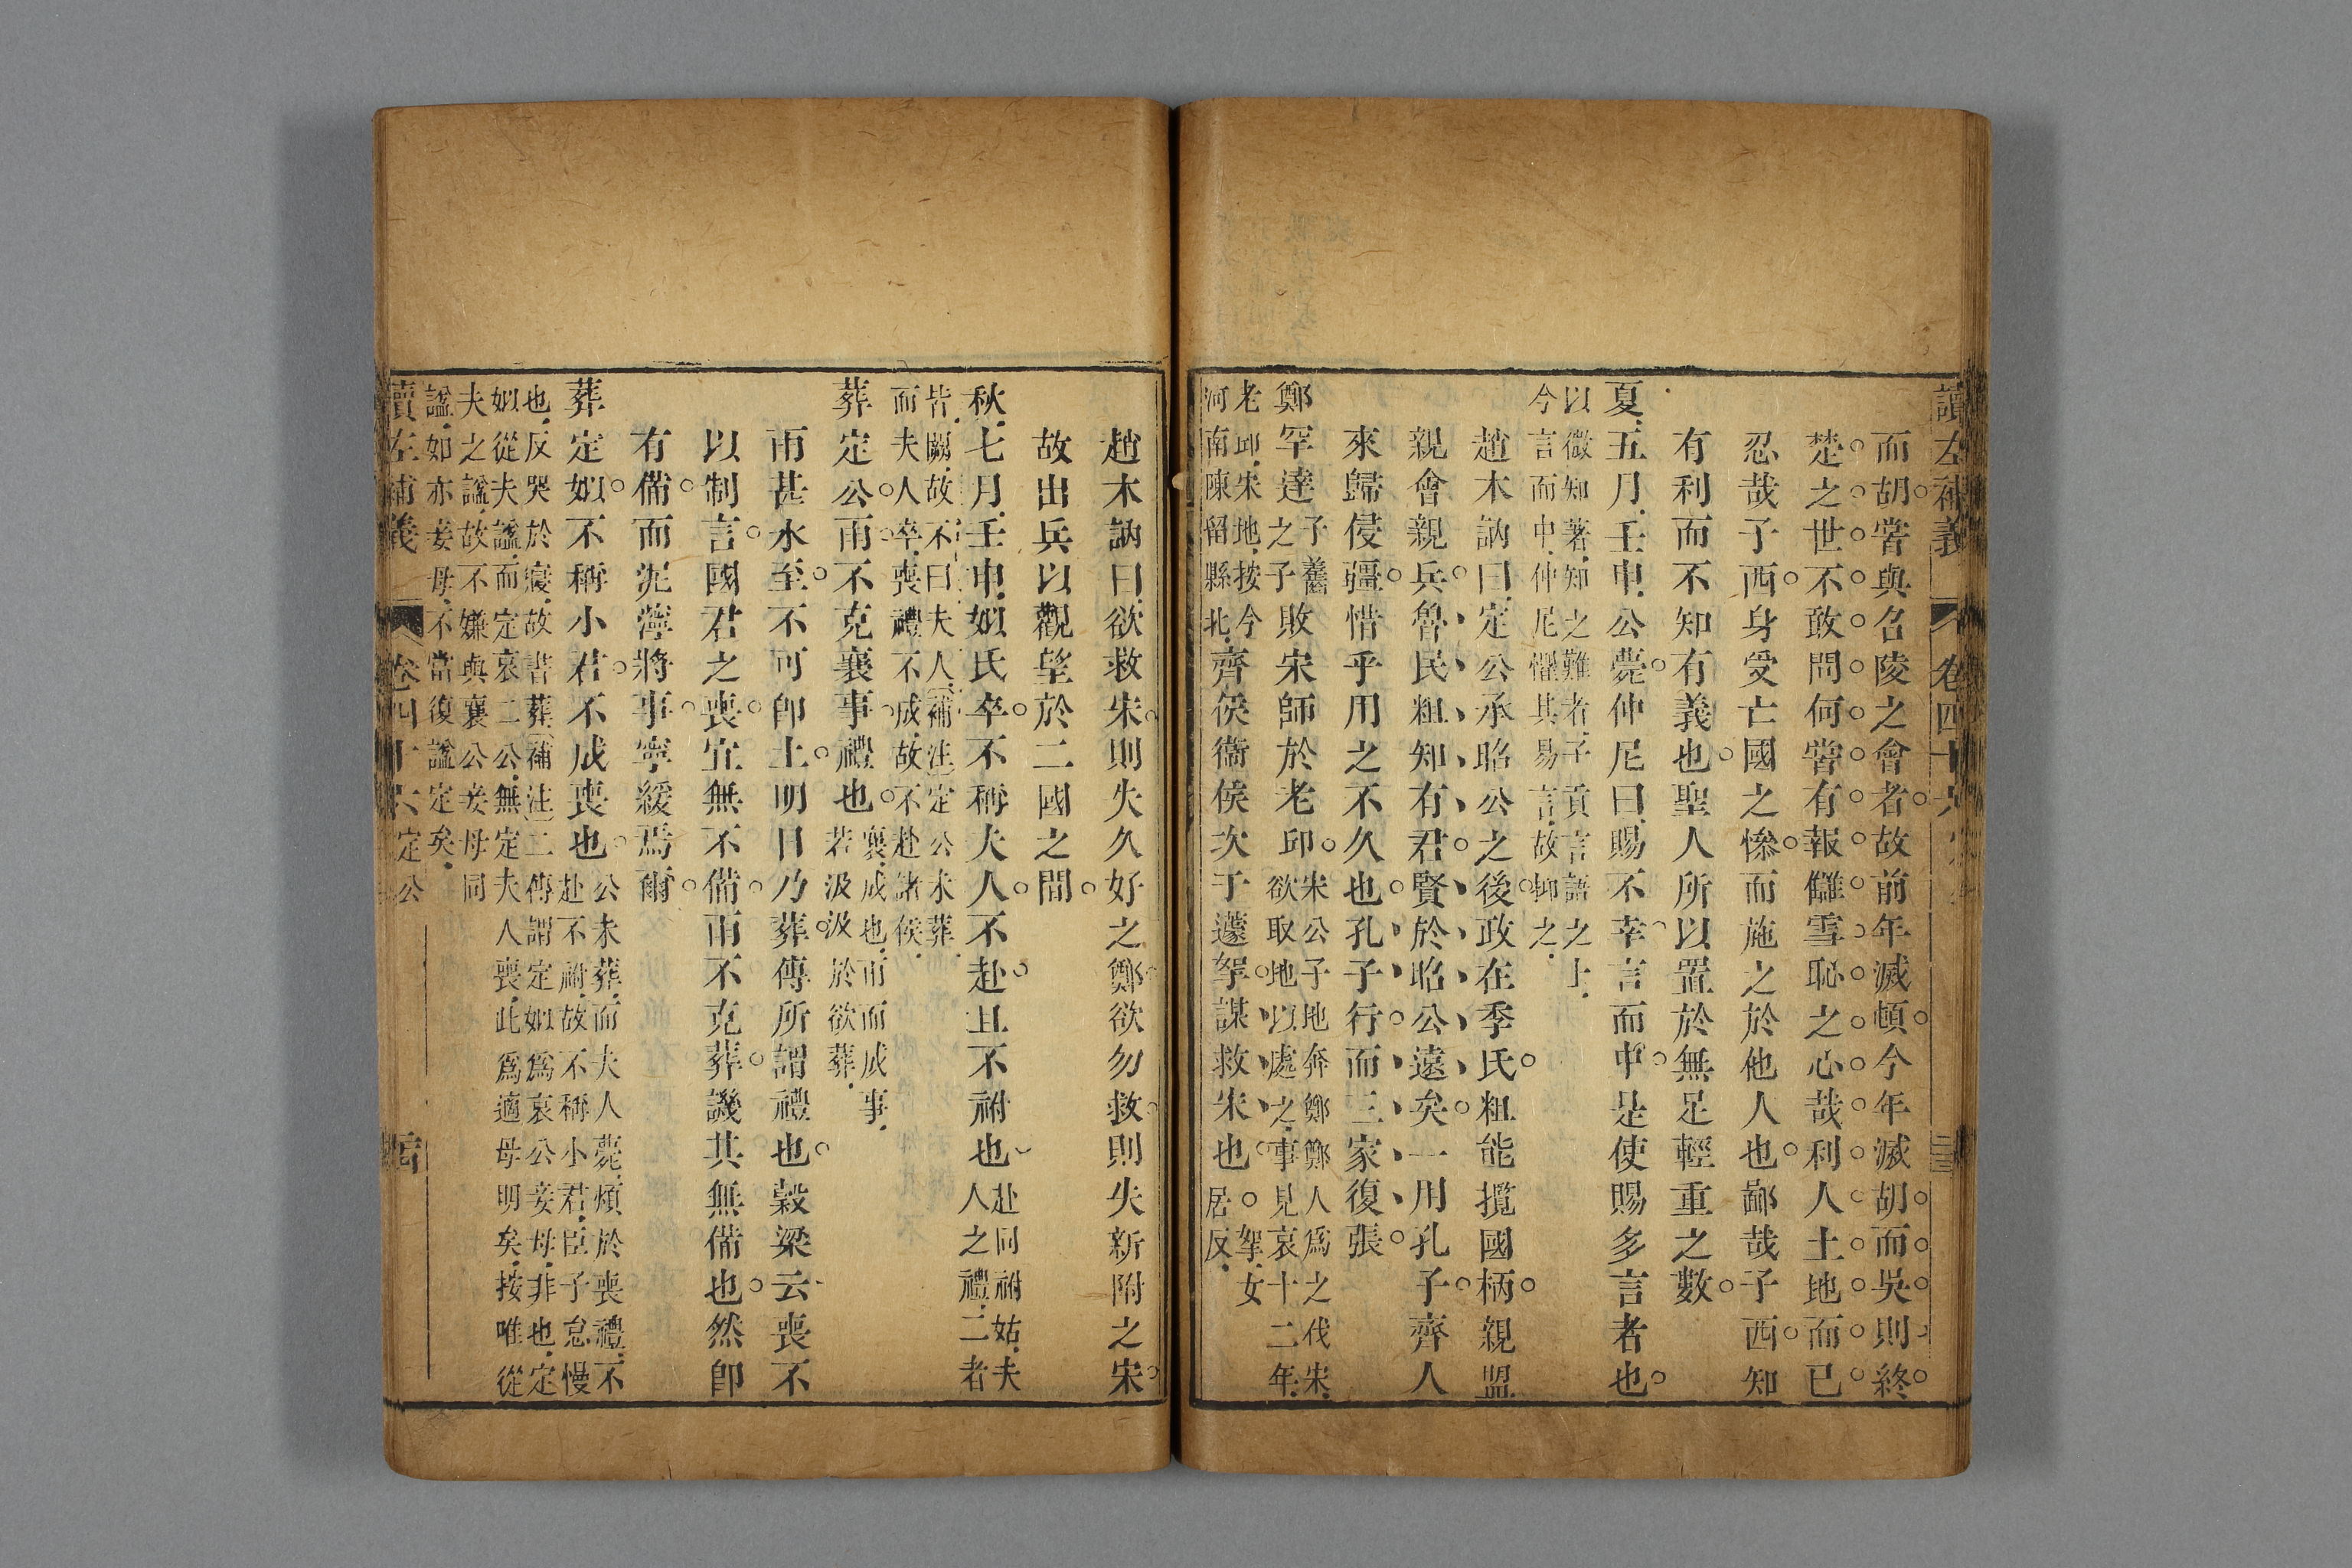 讀左補義 卷四十六
而胡嘗與召陵之會者故前年滅頓今年滅胡而吳則終
楚之世不敢問何嘗有報讎雪恥之心哉利人土地而已
忍哉子西身受亡國之慘而施之於他人也鄙哉子西知
有利而不知有義也聖人所以置於無足輕重之數
夏五月壬申公薨仲尼曰賜不幸言而中是使賜多言者也
以微知著知之難者子貢言語之士
今言而中仲尼懼其易言故抑之
趙木訥曰定公承昭公之後政在季氏粗能攬國柄親盟
親會親兵魯民粗知有君賢於昭公遠矣一用孔子齊人
來歸侵疆惜乎用之不久也孔子行而三家復張
鄭罕達子齹之子敗宋師於老邱宋公子地奔鄭鄭人爲之伐宋欲取地以處之事見哀十二年
老邱宋地按今河南陳留縣北齊侯衞侯次于蘧挐謀救宋也挐女居反
趙木訥曰欲救宋則失久好之鄭欲勿救則失新附之宋
故出兵以觀望於二國之間
秋七月壬申姒氏卒不稱夫人不赴且不祔也赴同祔姑夫人之禮二者
皆闕故不曰夫人補注定公未葬
而夫人卒喪禮不成故不赴諸侯
葬定公雨不克襄事禮也襄成也雨而成事若汲汲於欲葬
雨甚水至不可卽土明日乃葬傳所謂禮也穀梁云喪不
以制言國君之喪宜無不備雨不克葬譏其無備也然卽
有備而泥濘將事寧緩焉爾
葬定姒不稱小君不成喪也公未葬而夫人薨煩於喪禮不赴不祔故不稱小君臣子怠慢
也反哭於寢故書葬補注二傳謂定姒爲哀公妾母非也定
姒從夫諡而定哀二公無定夫人喪此爲適母明矣按唯從
夫之諡故不嫌與襄公妾母同
諡如亦妾母不當復諡定矣
讀左補義 卷四十六 定公